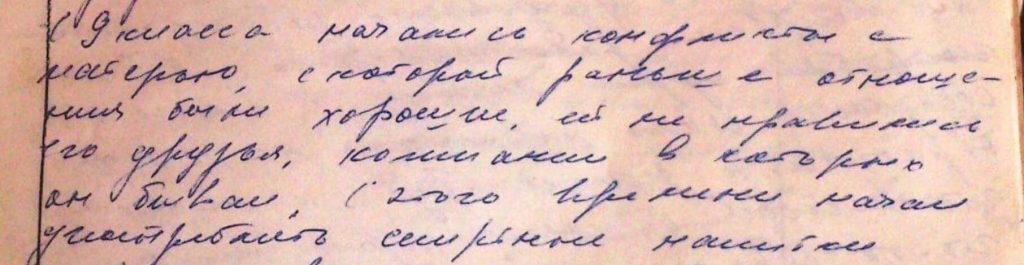 С 9 класса начались конфликты с
матерью, с которой раньше отноше-
ния были хорошие, ей не нравились
его друзья, компании в которых
он бывал, С этого времени начал
употреблять спиртные напитки